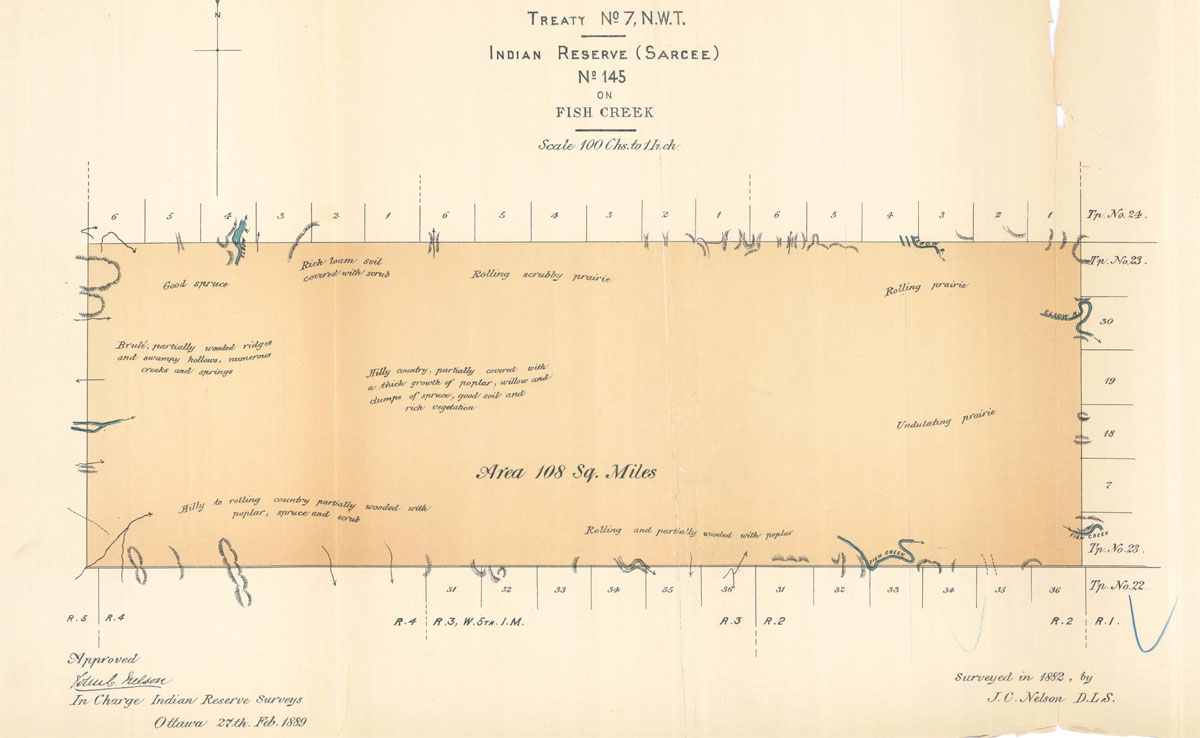 N
TREATY Nº 7, N.W.T.
INDIAN RESERVE (SARCEE)
Nº 145
ON
FISH CREEK
Scale 100 Chs. to 1 Inch.
6 5 4 3 2 1 6 5 4 3 2 1 6 5 4 3 2 1 Tp. No. 24.
ELBOW R.
Tp. No. 23.
Good spruce
Rich loam soil
covered with scrub
Rolling scrubby prairie
Rolling prairie
ELBOW R.
30
Brulé, partially wooded ridges
and swampy hollows, numerous
creeks and springs
Hilly country, partially covered with
a thick growth of poplar, willow and
clumps of spruce, good soil and
rich vegetation
19
Undulating prairie
18
Area 108 Sq. Miles
7
Hilly to rolling country partially wooded with
poplar, spruce and scrub
Rolling and partially wooded with poplar
FISH CREEK
FISH CREEK
Tp. No. 23.
31 32 33 34 35 36 31 32 33 34 35 36 Tp. No. 22.
R. 5 R. 4 R. 4 R. 3, W. 5TH. I. M. R. 3 R. 2 R. 2 R. 1.
Approved
John C. Nelson
In Charge Indian Reserve Surveys
Ottawa 27th. Feb. 1889
Surveyed in 1882, by
J. C. Nelson D.L.S.